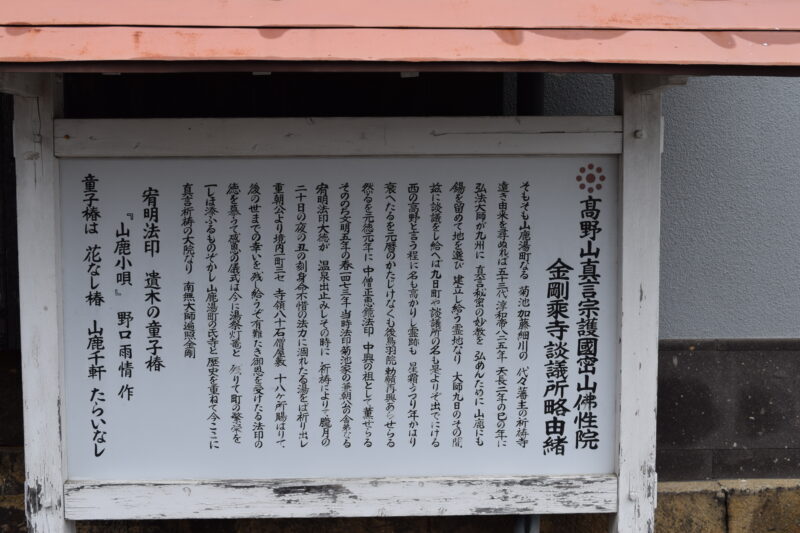 高野山真言宗護國密山佛性院
金剛乗寺談議所略由緒
そもそも山鹿湯町なる 菊池 加藤細川の 代々藩主の祈祷寺
遠き由来を尋ぬれば五十三代淳和帝八二五年 天長二年の巳の年に
弘法大師が九州に 真言秘密の妙教を 弘めんために 山鹿にも
錫を留めて地を選び 建立し給う霊地なり 大師九日のその間
玆に談議をし給へば九日町や談議所の名も是よりぞ出でにける
西の高野と言う程に名も高かりし霊跡も 星霜うつり年かはり
衰へたるを元暦のかたじけなくも後鳥羽院勅願再興あらせらる
然るを元徳元年に 中僧正恵龍法印 中興の祖として董せらる
そののち文明五年の春一四七三年当時法印菊池家の重朝公の舎弟なる
宥明法印大徳が 温泉出止みしその時に 祈祷によりて朧月の
二十日の夜の丑の刻身命不惜の法力に涸れたる湯をば祈り出し
重朝公より境内一町三セ 寺領八十石僧屋敷 十八ヶ所賜はりて
後の世までの幸いを残し給うぞ有難たき御恩を受けたる法印の
徳を慕うて感恩の儀式は今に湯祭灯篭と 残りて町の繁栄を
一しほ添ふるものぞかし山鹿湯町の氏寺と歴史を重ねて今ここに
真言祈祷の大院なり 南無大師遍照金剛
宥明法印 遺木の童子椿
『山鹿小唄』 野口雨情 作
童子椿は 花なし椿 山鹿千軒 たらいなし